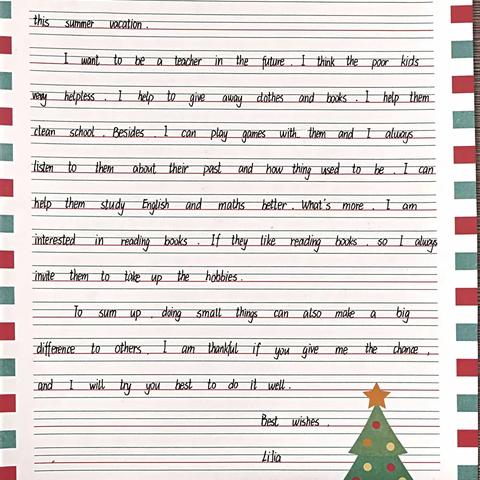 this summer vacation.
I want to be a teacher in the future. I think the poor kids
very helpless. I help to give away clothes and books. I help them
clean school. Besides, I can play games with them and I always
listen to them about their past and how thing used to be. I can
help them study English and maths better. What's more, I am
interested in reading books. If they like reading books, so I always
invite them to take up the hobbies.
To sum up, doing small things can also make a big
difference to others. I am thankful if you give me the chance,
and I will try you best to do it well.
Best wishes,
LiJia